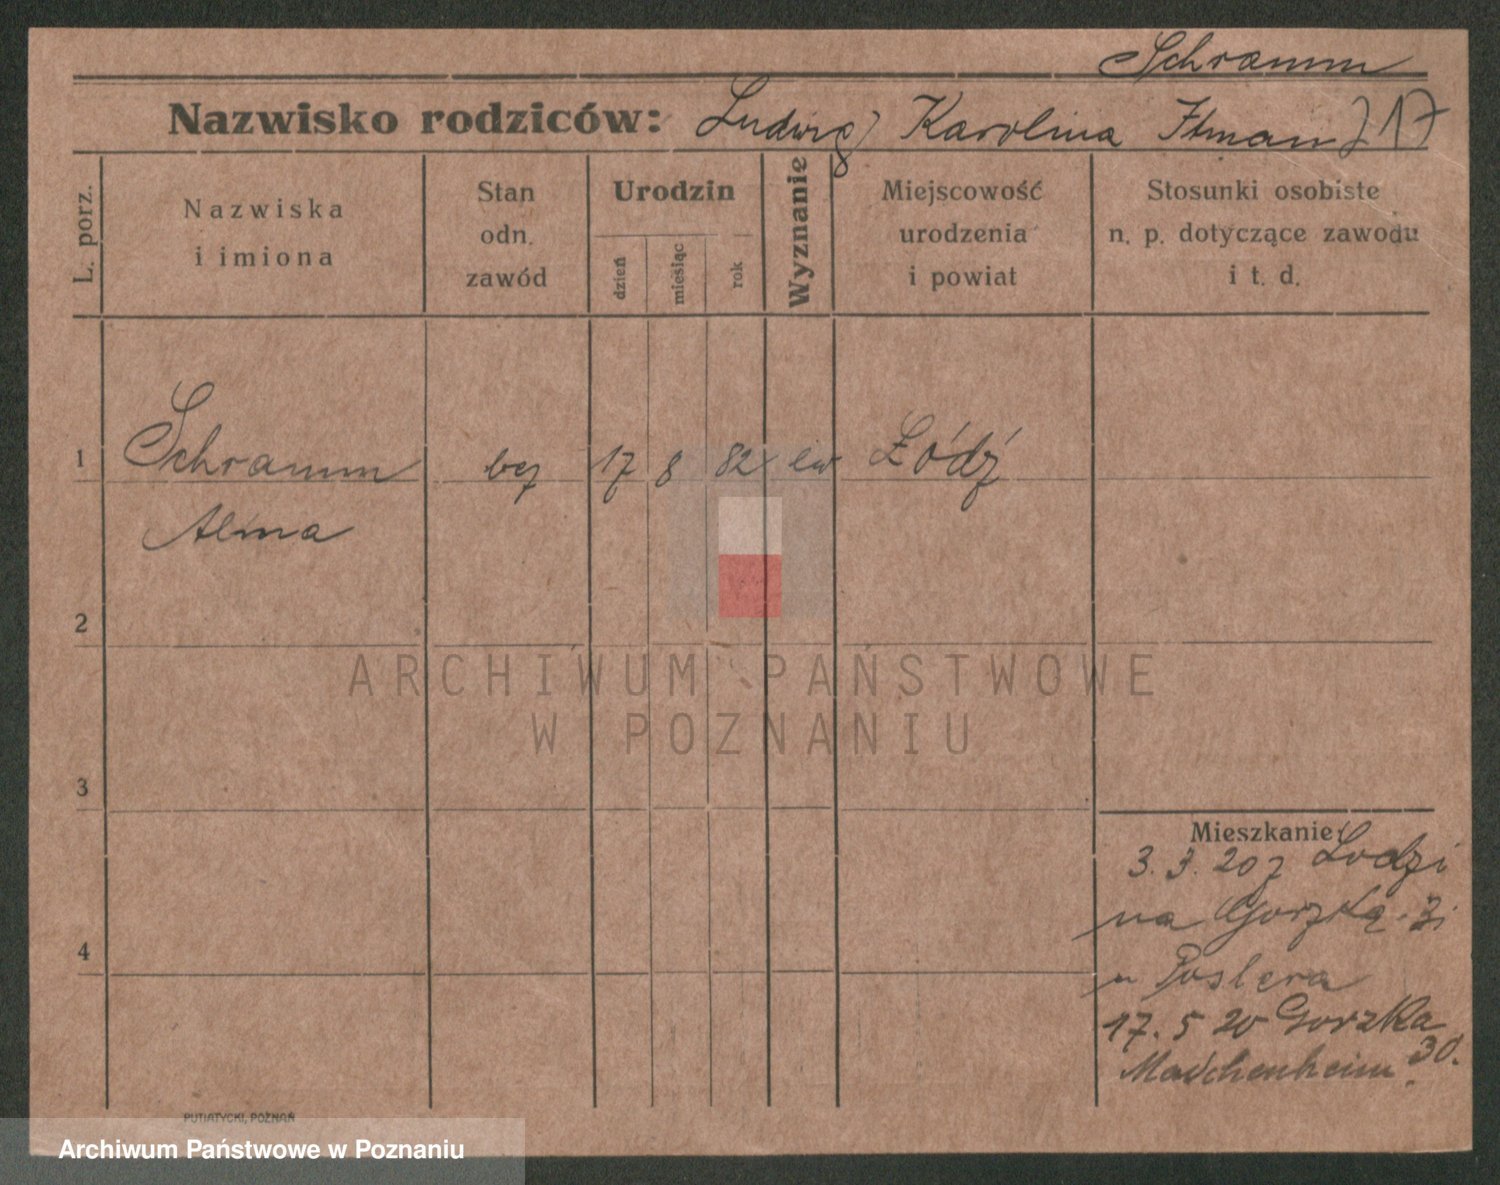 Schramm
Nazwisko rodziców: Ludwig Karolina
L. porz.
Nazwiska
i imiona
Stan
odn.
zawód
Urodzin
dzień
miesiąc
rok
Wyznanie
Miejscowość
urodzenia
i powiat
Stosunki osobiste
n. p. dotyczące zawodu
i t. d.
1 Schramm 17 8 82 ew Łódź
Alma
2
3
4
Mieszkanie:
3. 3. 20 z Łodzi
na Gorzką
u
17. 5 20 Gorzka
Mädchenheim 30.
ARCHIWUM PAŃSTWOWE
W POZNANIU
PUTIATYCKI, POZNAŃ
Archiwum Państwowe w Poznaniu